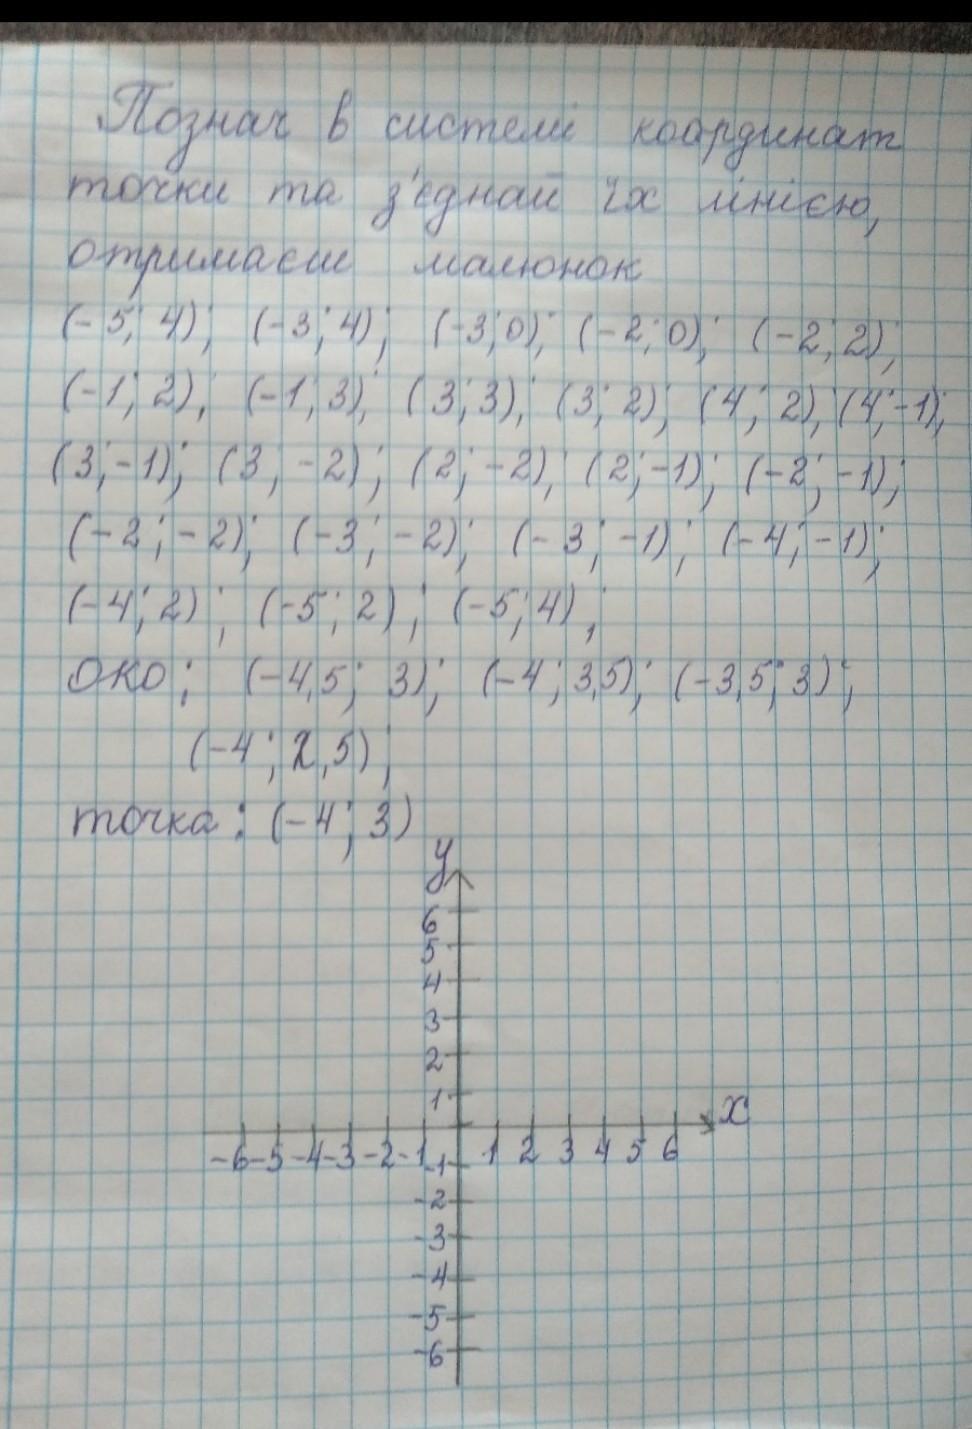 Познач в системі координат
точки та з'єднай їх лінією,
отримаєш малюнок
(-5; 4); (-3; 4); (-3; 0); (-2; 0); (-2; 2);
(-1; 2); (-1; 3); (3; 3); (3; 2); (4; 2); (4; -1);
(3; -1); (3; -2); (2; -2); (2; -1); (-2; -1);
(-2; -2); (-3; -2); (-3; -1); (-4; -1);
(-4; 2); (-5; 2); (-5; 4);
око: (-4,5; 3); (-4; 3,5); (-3,5; 3);
(-4; 2,5);
точка: (-4; 3)
y
6
5
4
3
2
1
x
-6 -5 -4 -3 -2 -1 1 2 3 4 5 6
-1
-2
-3
-4
-5
-6